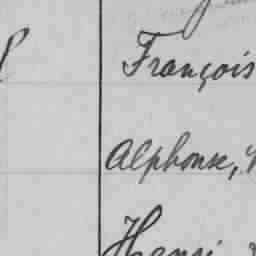 François
Alphonse,
Henri